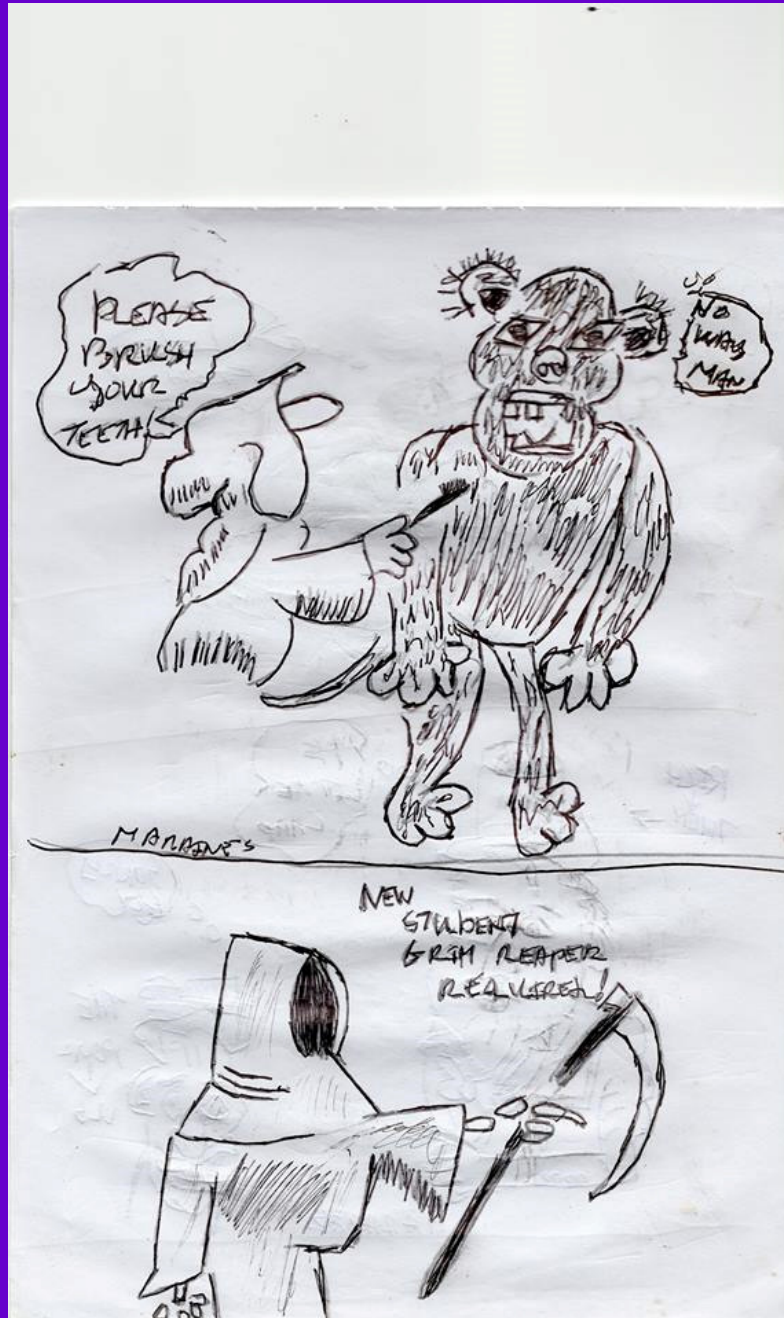 PLEASE
BRUSH
YOUR
TEETH
NO
WAY
MAN
NEW
STUDENT
GRIM REAPER
REQUIRED!